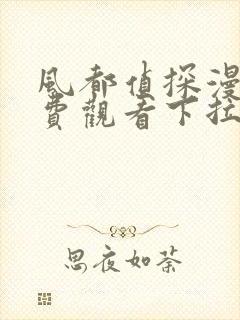 風都偵探漫
費觀看下拉
思夜如荼